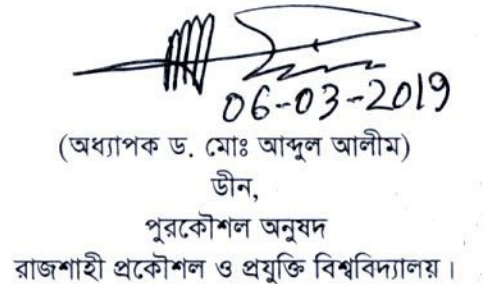 06-03-2019
(অধ্যাপক ড. মোঃ আব্দুল আলীম)
ডীন,
পুরকৌশল অনুষদ
রাজশাহী প্রকৌশল ও প্রযুক্তি বিশ্ববিদ্যালয়।